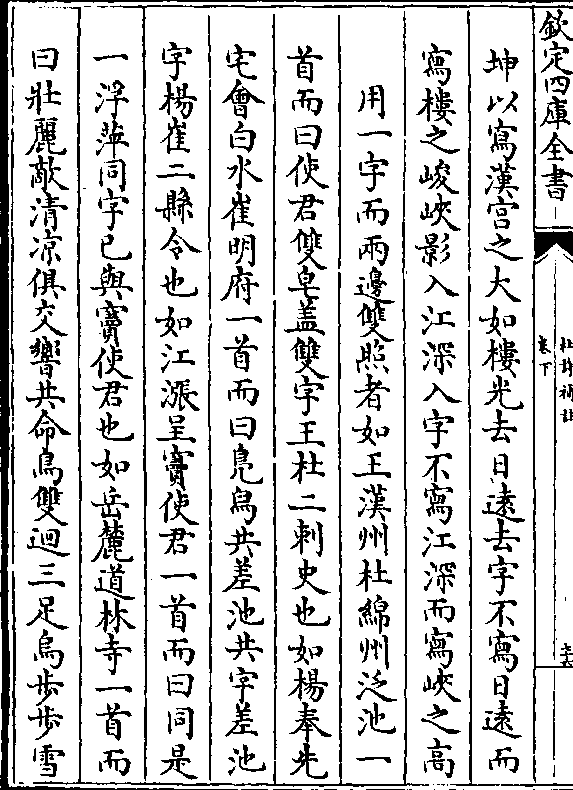 欽定四庫全書
杜詩補註
卷下
坤以寫漢宫之大如樓光去日逺去字不寫日逺而
寫樓之峻峽影入江深入字不寫江深而寫峽之高
用一字而兩邊雙照者如王漢州杜綿州泛池一
首而曰使君雙皂盖雙字王杜二刺史也如楊奉先
宅會白水崔明府一首而曰鳬舄共差池共字差池
字楊崔二縣令也如江漲呈竇使君一首而曰同是
一浮萍同字已與竇使君也如岳麓道林寺一首而
曰壯麗敵清凉俱交響共命鳥雙迴三足烏步步雪